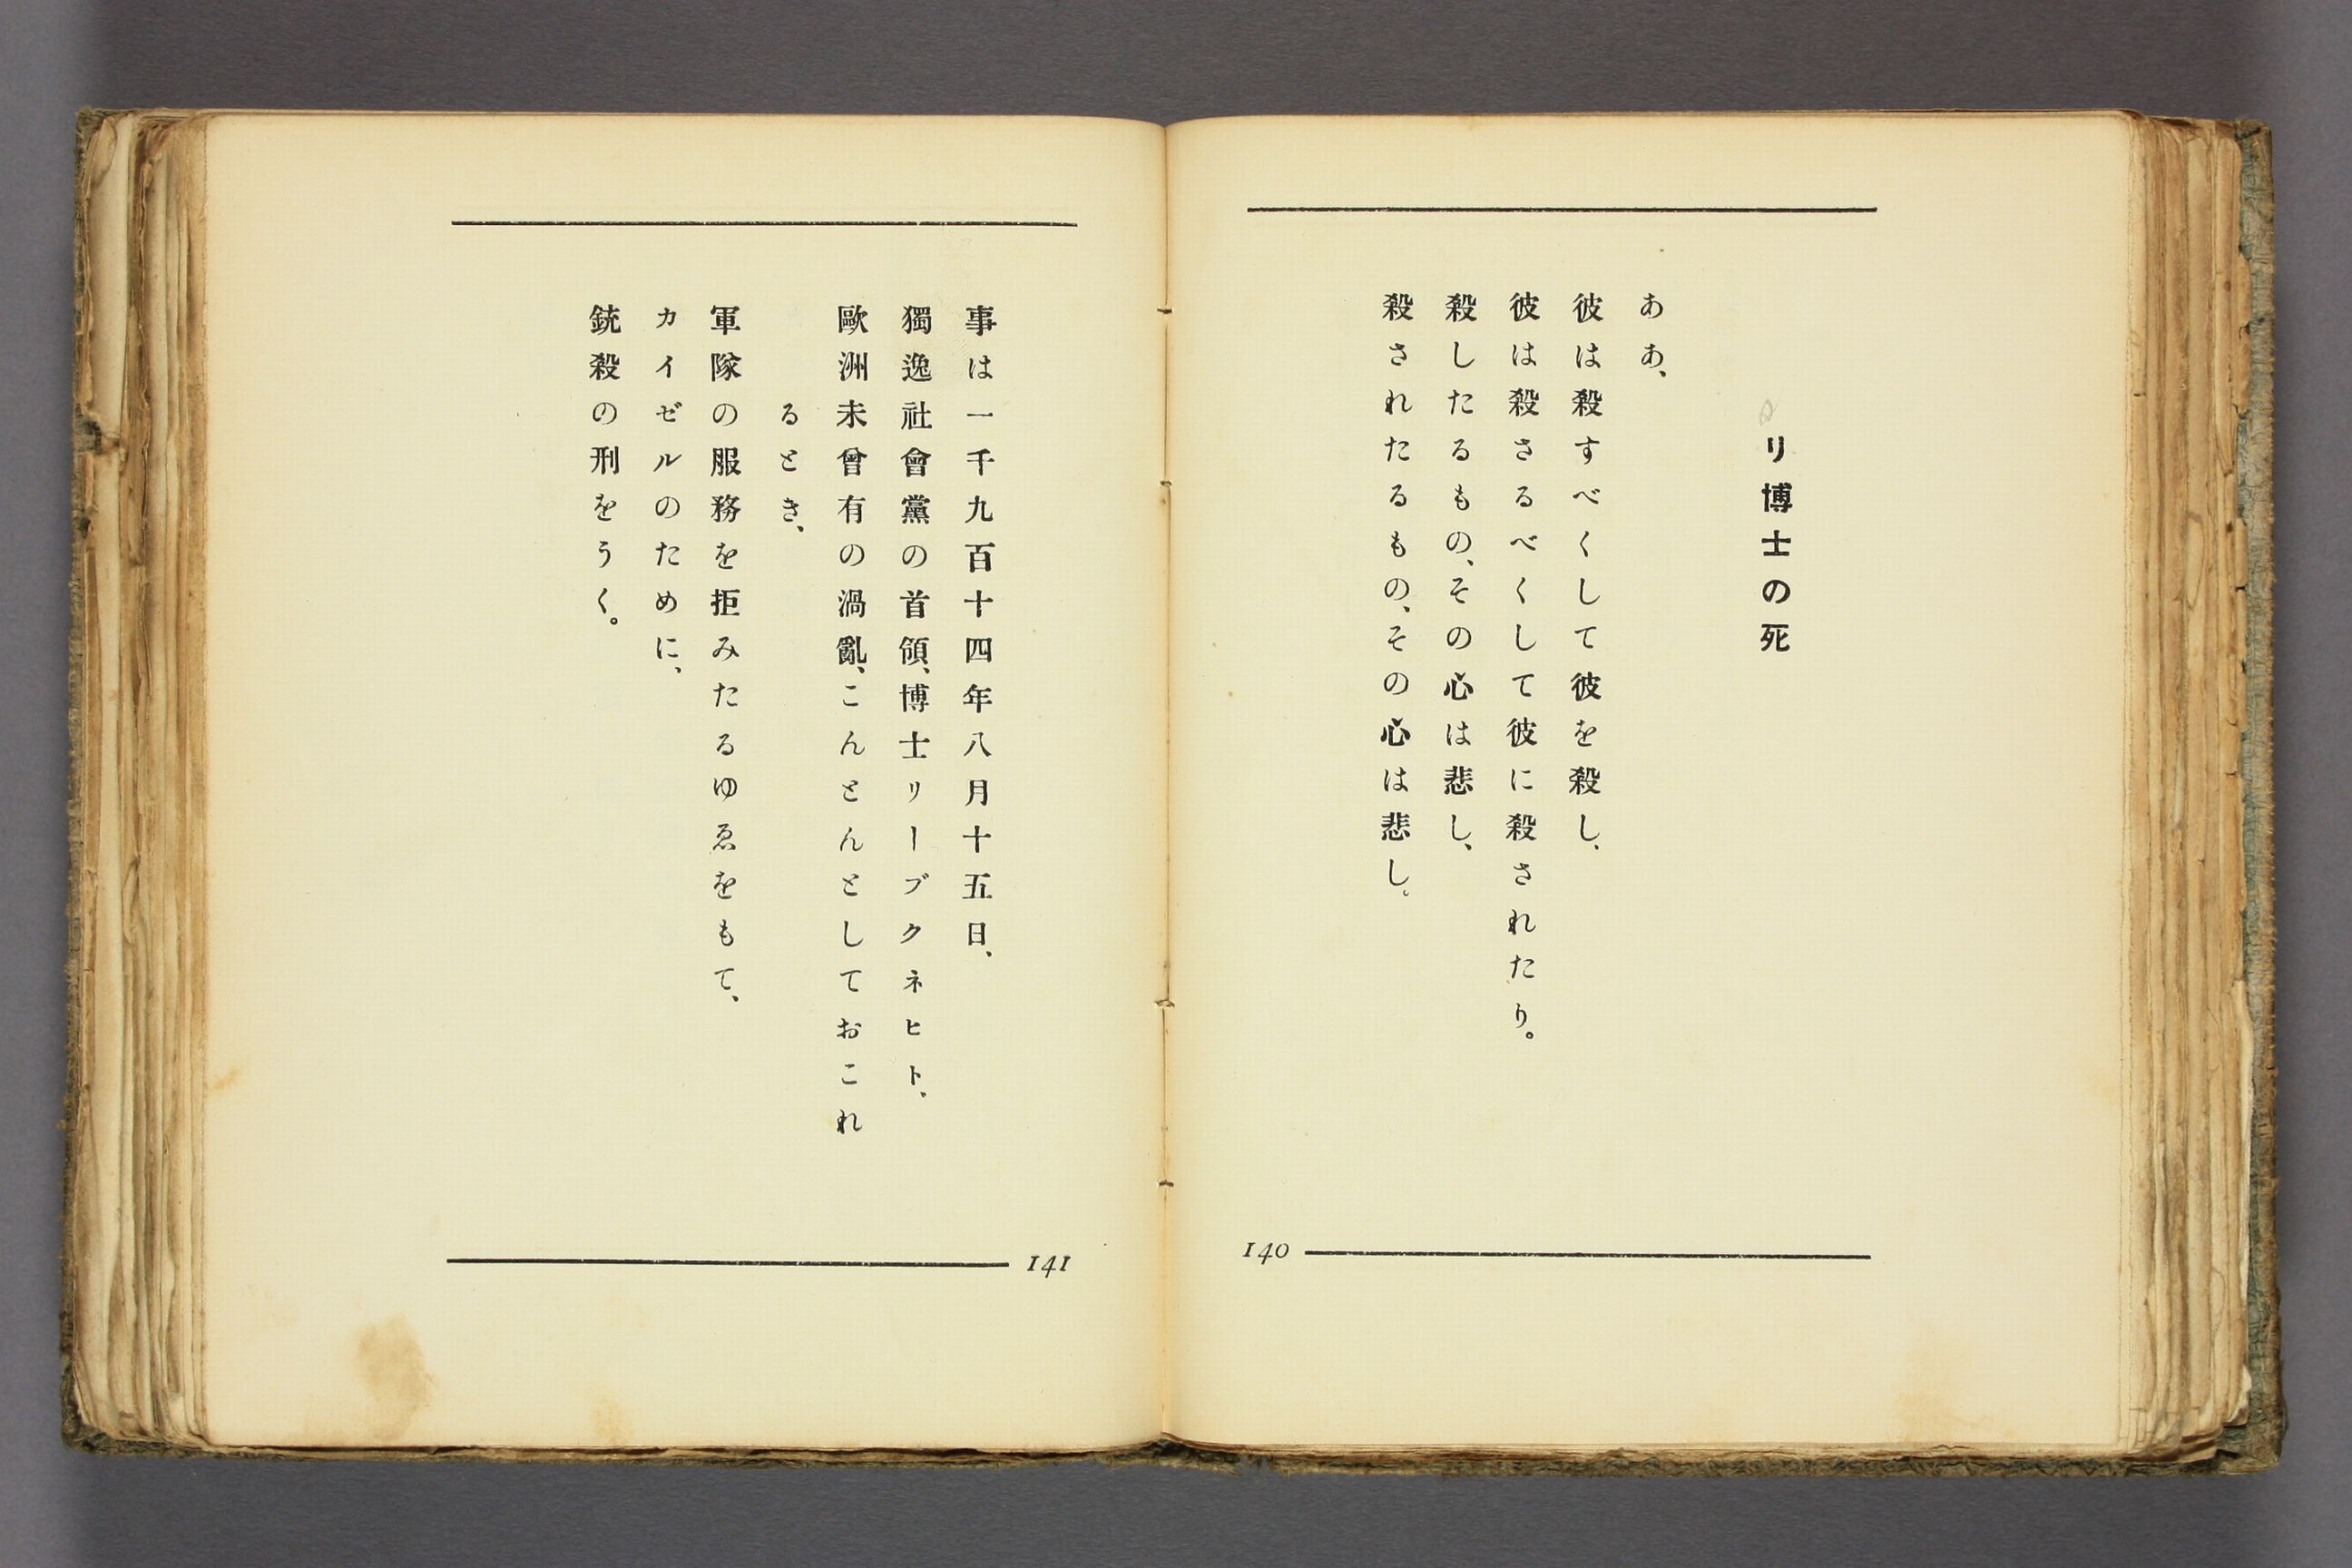 リ博士の死
ああ、
彼は殺すべくして彼を殺し、
彼は殺さるべくして彼に殺されたり。
殺したるもの、その心は悲し、
殺されたるもの、その心は悲し。
140
事は一千九百十四年八月十五日、
獨逸社會黨の首領、博士リーブクネヒト、
歐洲未曾有の渦亂、こんとんとしておこれ
るとき、
軍隊の服務を拒みたるゆゑをもて、
カイゼルのために、
銃殺の刑をうく。
141